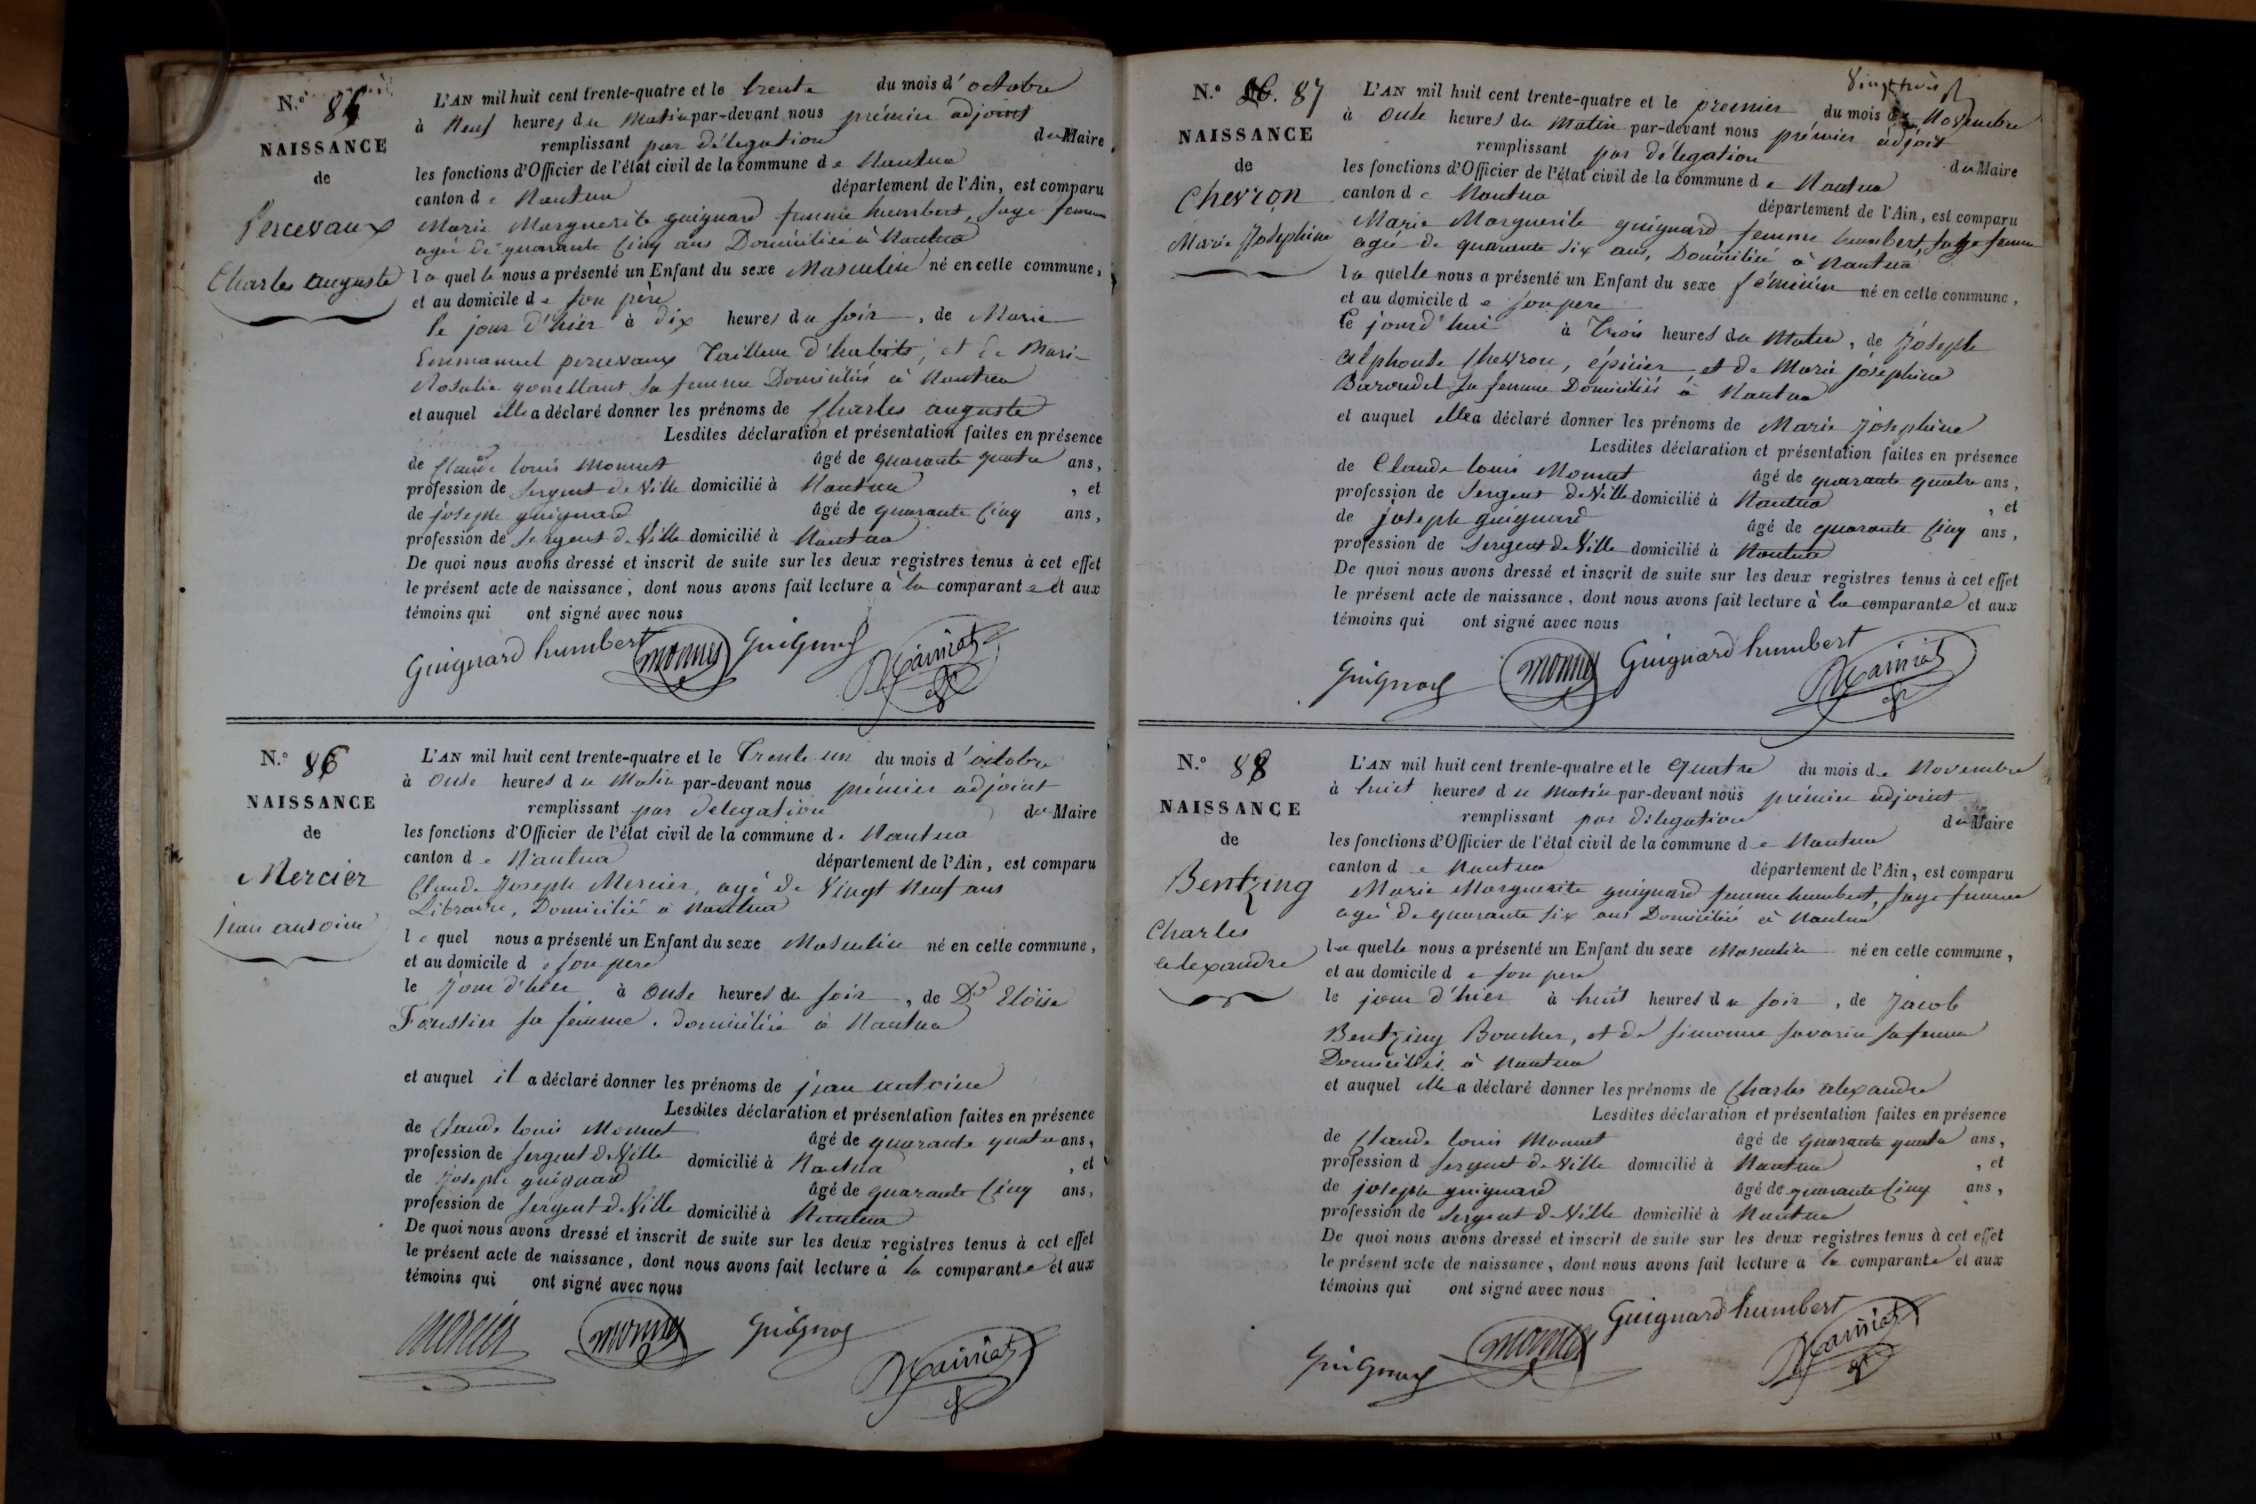 N.° 85
NAISSANCE
de
Percevaux
Charles auguste
L'AN mil huit cent trente-quatre et le trente du mois d'octobre
à Neuf heures du Matin par-devant nous prémier adjoint
remplissant par délégation du Maire
les fonctions d'Officier de l'état civil de la commune de Nantua
canton de Nantua département de l'Ain, est comparu
Marie Marguerite guignard femme humbert, sage femme
agée de quarante cinq ans Domiciliée à Nantua
laquelle nous a présenté un Enfant du sexe Masculin né en cette commune,
et au domicile de son père
le jour d'hier à dix heures du soir, de Marie
Emmanuel percevaux Tailleur d'habits, et de Marie
Rosalie sa femme Domiciliés à Nantua
et auquel elle a déclaré donner les prénoms de Charles auguste
Lesdites déclaration et présentation faites en présence
de Claude louis Monnet âgé de quarante quatre ans,
profession de sergent de Ville domicilié à Nantua, et
de joseph guignard âgé de quarante cinq ans,
profession de sergent de Ville domicilié à Nantua
De quoi nous avons dressé et inscrit de suite sur les deux registres tenus à cet effet
le présent acte de naissance, dont nous avons fait lecture à la comparante et aux
témoins qui ont signé avec nous
Guignard humbert Monnet Guignard
N.° 86
NAISSANCE
de
Mercier
jean antoine
L'AN mil huit cent trente-quatre et le Trente un du mois d'octobre
à onse heures du Matin par-devant nous prémier adjoint
remplissant par délégation du Maire
les fonctions d'Officier de l'état civil de la commune de Nantua
canton de Nantua département de l'Ain, est comparu
Claude Joseph Mercier, agé de Vingt Neuf ans
Libraire, Domicilié à Nantua
lequel nous a présenté un Enfant du sexe Masculin né en cette commune,
et au domicile de son pere
le Jour d'hier à onse heures du soir, de De Eloïse
Forestier sa femme, domiciliée à Nantua
et auquel il a déclaré donner les prénoms de jean antoine
Lesdites déclaration et présentation faites en présence
de Claude louis Monnet âgé de quarante quatre ans,
profession de sergent de Ville domicilié à Nantua, et
de Joseph guignard âgé de quarante cinq ans,
profession de sergent de Ville domicilié à Nantua
De quoi nous avons dressé et inscrit de suite sur les deux registres tenus à cet effet
le présent acte de naissance, dont nous avons fait lecture à la comparante et aux
témoins qui ont signé avec nous
mercier Monnet Guignard
Vingt trois
N.° 86. 87
NAISSANCE
de
Chevron
Marie Josephine
L'AN mil huit cent trente-quatre et le premier du mois de Novembre
à onse heures du Matin par-devant nous prémier adjoint
remplissant par délegation du Maire
les fonctions d'Officier de l'état civil de la commune de Nantua
canton de Nantua département de l'Ain, est comparu
Marie Marguerite guignard femme humbert, sage femme
agée de quarante six ans, Domiciliée à Nantua
laquelle nous a présenté un Enfant du sexe féminin né en cette commune,
et au domicile de son pere
le jourd'hui à Trois heures du Matin, de Joseph
alphonse Chevron, épicier et de Marie joséphine
sa femme Domiciliés à Nantua
et auquel elle a déclaré donner les prénoms de Marie Joséphine
Lesdites déclaration et présentation faites en présence
de Claude louis Monnet âgé de quarante quatre ans,
profession de sergent de Ville domicilié à Nantua, et
de joseph guignard âgé de quarante cinq ans,
profession de sergent de Ville domicilié à Nantua
De quoi nous avons dressé et inscrit de suite sur les deux registres tenus à cet effet
le présent acte de naissance, dont nous avons fait lecture à la comparante et aux
témoins qui ont signé avec nous
Guignard Monnet Guignard humbert
N.° 88
NAISSANCE
de
Bentzing
Charles
alexandre
L'AN mil huit cent trente-quatre et le Quatre du mois de Novembre
à huit heures du Matin par-devant nous prémier adjoint
remplissant par délégation du Maire
les fonctions d'Officier de l'état civil de la commune de Nantua
canton de Nantua département de l'Ain, est comparu
Marie Marguerite guignard femme humbert, sage femme
agée de quarante six ans Domiciliée à Nantua
laquelle nous a présenté un Enfant du sexe Masculin né en cette commune,
et au domicile de son pere
le jour d'hier à huit heures du soir, de Jacob
Bentzing Boucher, et de simonne savarin sa femme
Domiciliés à Nantua
et auquel elle a déclaré donner les prénoms de Charles alexandre
Lesdites déclaration et présentation faites en présence
de Claude louis Monnet âgé de quarante quatre ans,
profession d sergent de Ville domicilié à Nantua, et
de joseph guignard âgé de quarante cinq ans,
profession de sergent de Ville domicilié à Nantua
De quoi nous avons dressé et inscrit de suite sur les deux registres tenus à cet effet
le présent acte de naissance, dont nous avons fait lecture à la comparante et aux
témoins qui ont signé avec nous
Guignard Monnet Guignard humbert